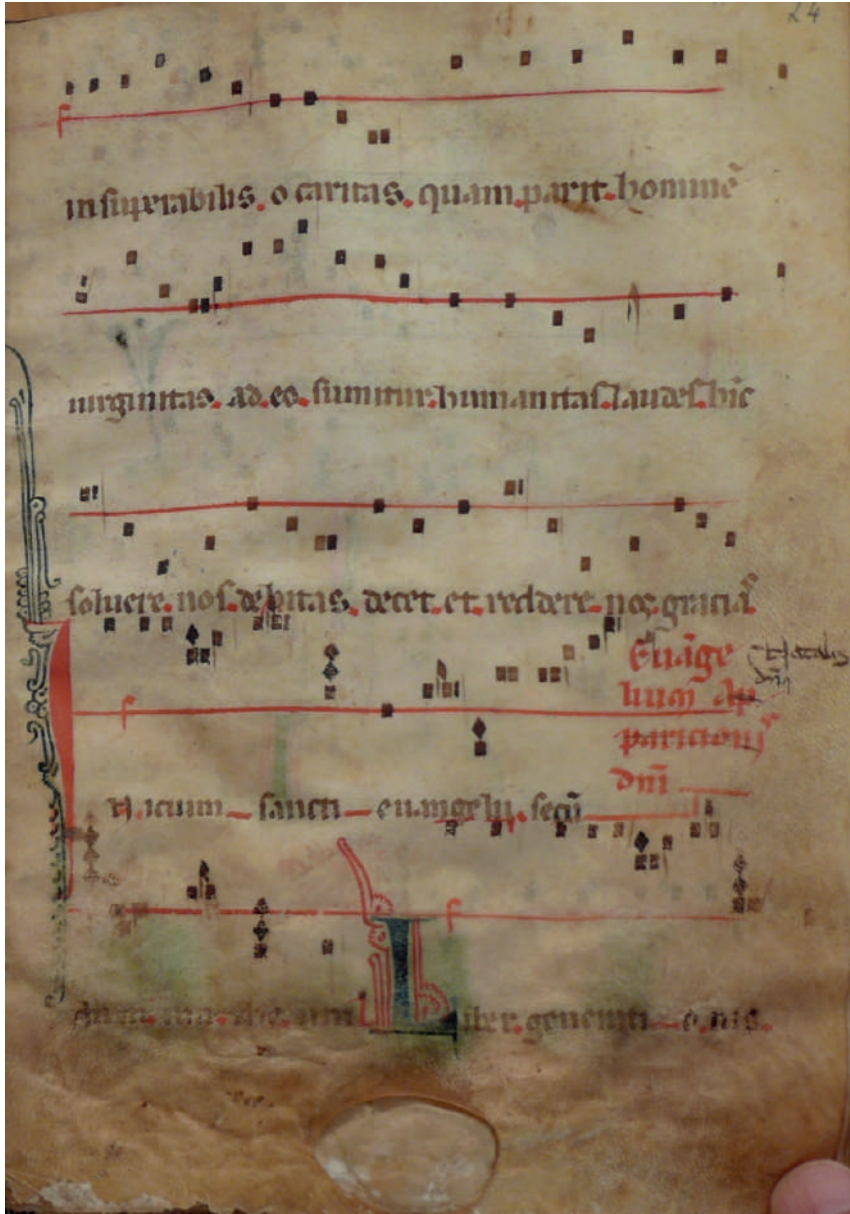 24
insuperabilis. o caritas. quam. parit. hominē
uirginitas. ad. eo. sumitur. humanitas. laudes. hīc
soluere. nos. debitas. decet. et. reddere. nos. graciā.
Euāge
lium Ap
paricionis
dnī
Inicium sancti euangelii. secū
dum. ma. the. um Liber. generati o. nis.